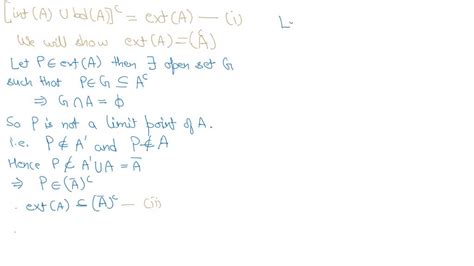 [int(A) ∪ bd(A)]ᶜ = ext(A) — (i)
L
We will show ext(A) = (Ā)ᶜ
Let P ∈ ext(A) then ∃ open set G
such that P ∈ G ⊆ Aᶜ
⇒ G ∩ A = ϕ
So P is not a limit point of A.
I.e. P ∉ A' and P ∉ A
Hence P ∉ A' ∪ A = Ā
⇒ P ∈ (Ā)ᶜ
. ext(A) ⊆ (Ā)ᶜ — (ii)